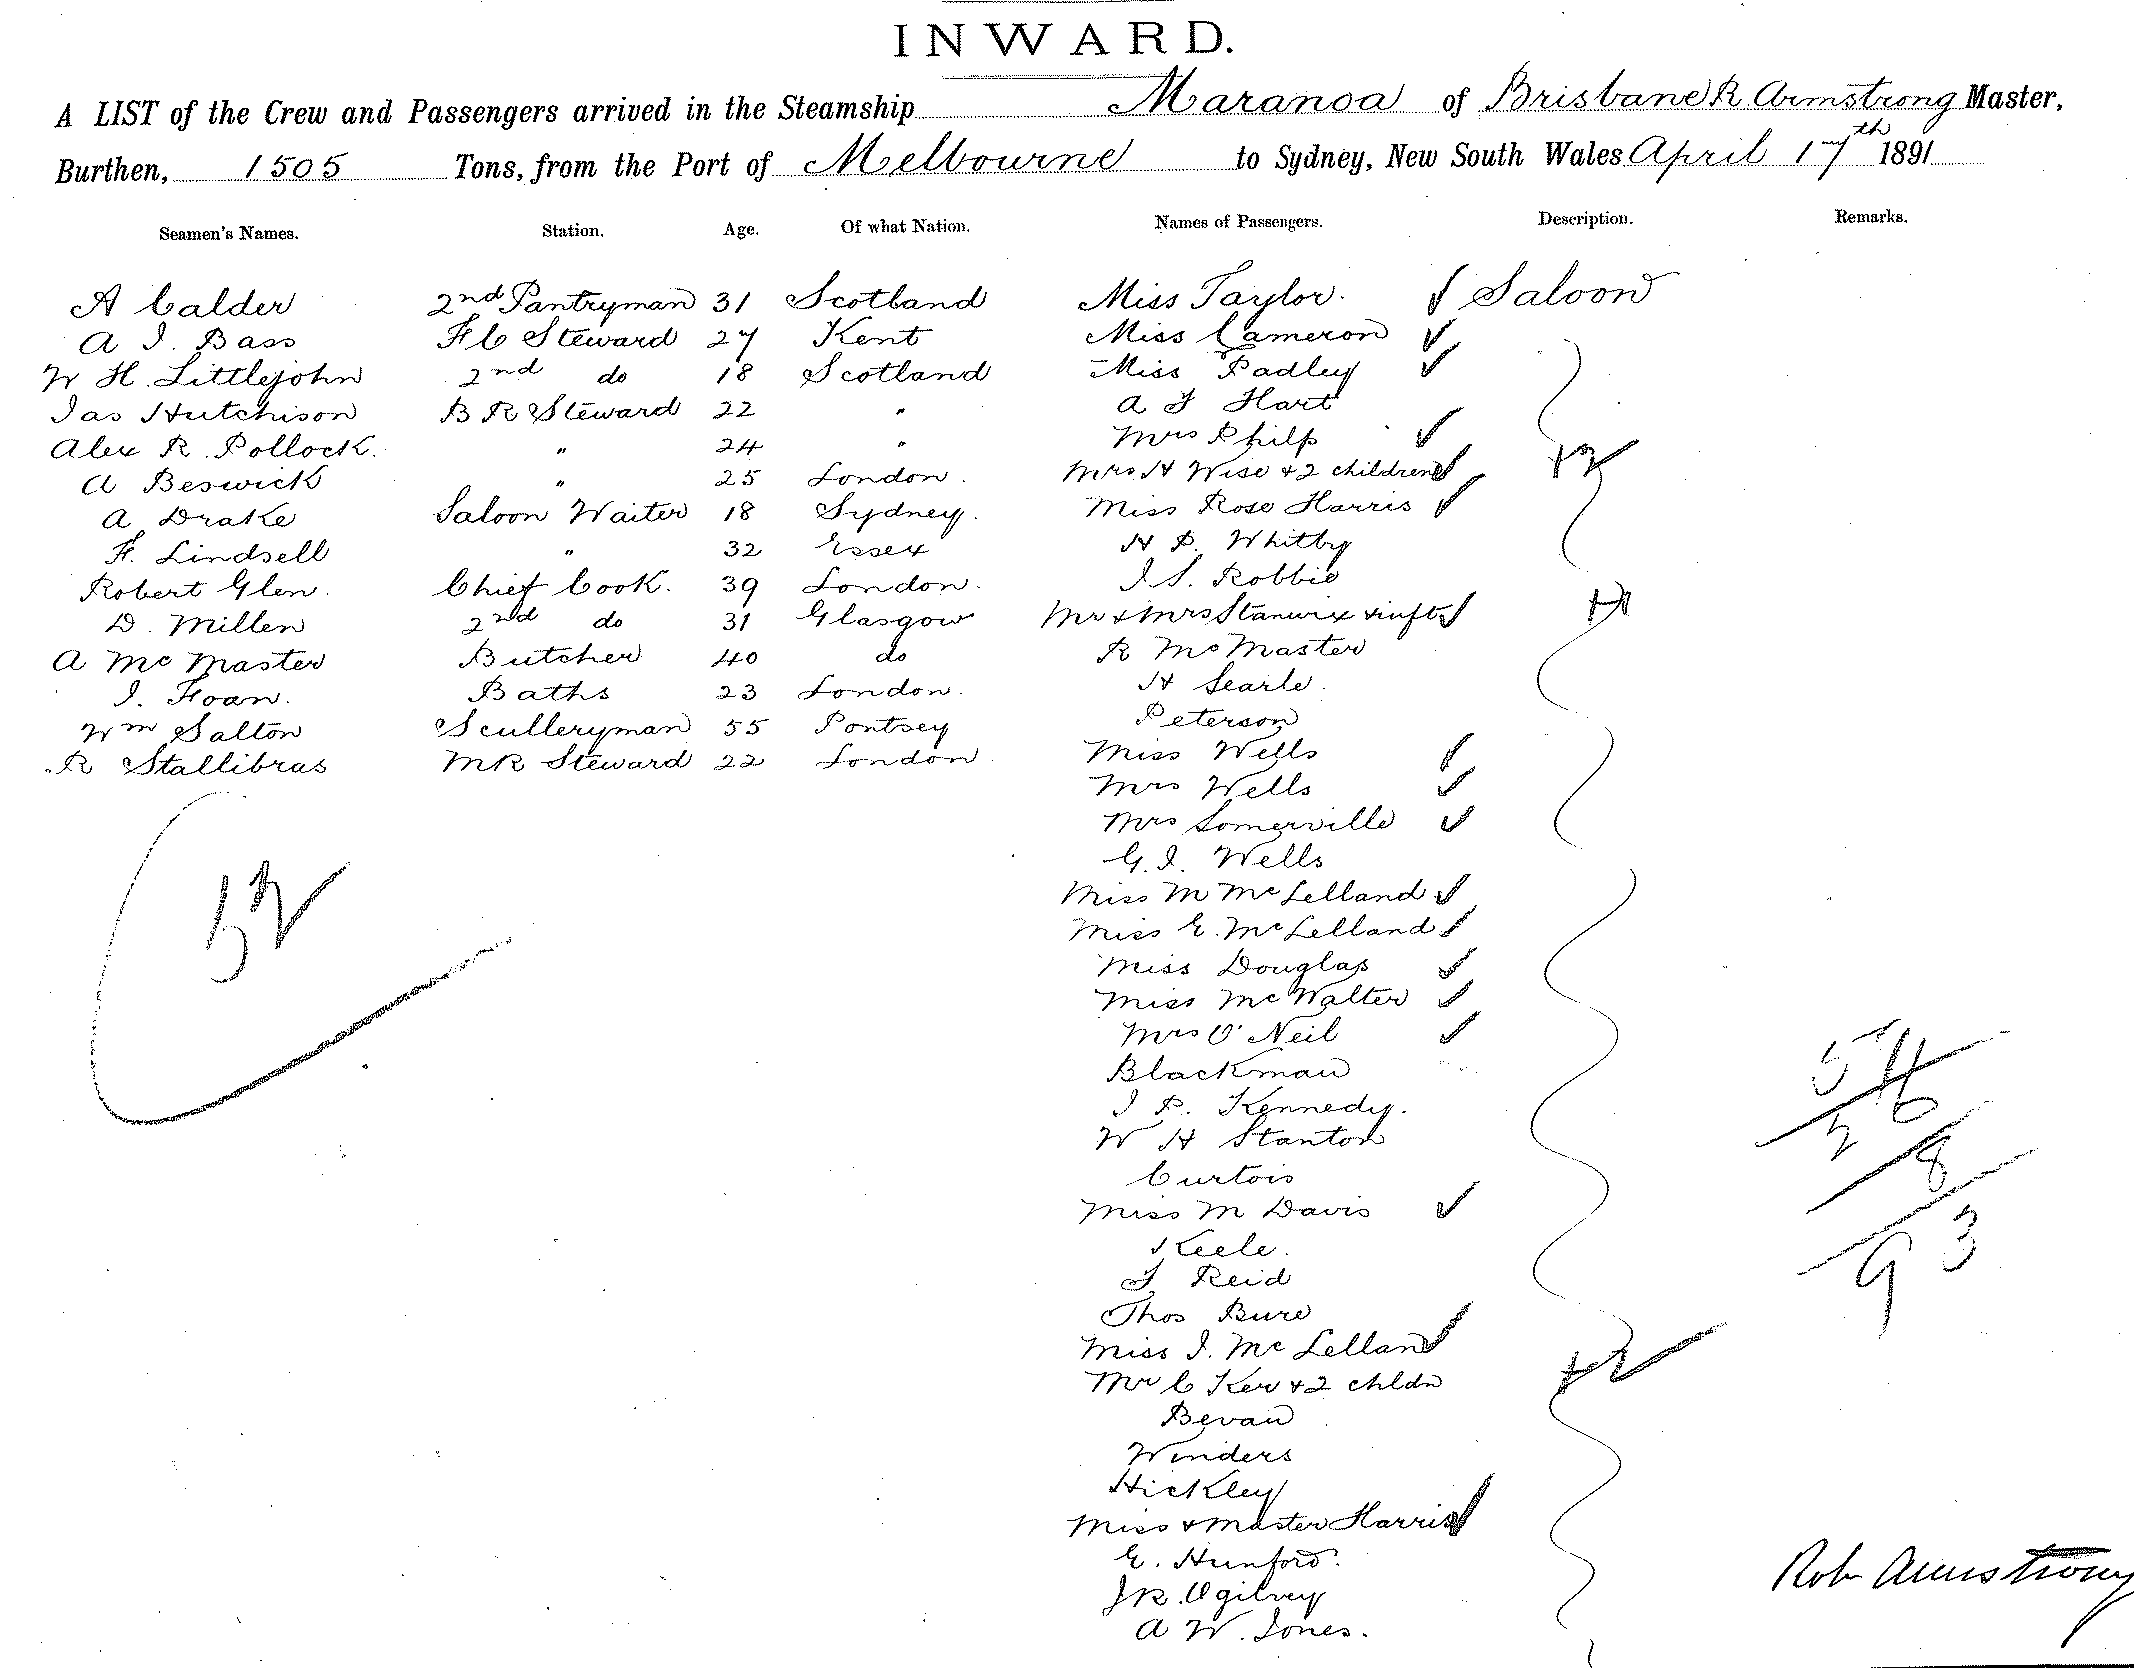 INWARD.
A LIST of the Crew and Passengers arrived in the Steamship Maranoa of Brisbane R Armstrong Master,
Burthen, 1505 Tons, from the Port of Melbourne to Sydney, New South Wales April 17th 1891
Seamen's Names. Station. Age. Of what Nation. Names of Passengers. Description. Remarks.
A Calder 2nd Pantryman 31 Scotland Miss Taylor. ✓ Saloon
A J. Bass F C Steward 27 Kent Miss Cameron ✓
W H. Littlejohn 2nd do 18 Scotland Miss Padley ✓
Jas Hutchison B R Steward 22 " A F Hart
Alex R. Pollock. " 24 " Mrs Philp ✓
A Beswick " 25 London. Mrs H Wise + 2 children ✓ +2
A Drake Saloon Waiter 18 Sydney. Miss Rose Harris ✓
F. Lindsell " 32 Essex H P. Whitby
Robert Glen. Chief Cook. 39 London. J. S. Robbie
D. Millen 2nd do 31 Glasgow Mr + Mrs Stanwix + inft ✓
A McMaster Butcher 40 do R McMaster
J. Hoan. Baths 23 London. H Searle.
Wm Salton Sculleryman 55 Portsey Peterson
R Stallibras MR Steward 22 London Miss Wells ✓
Mrs Wells ✓
Mrs Somerville ✓
G. J. Wells
52
Miss M McLelland ✓
Miss E. McLelland ✓
Miss Douglas ✓
Miss McWalter ✓
Mrs O'Neil ✓
Blackman
J P. Kennedy.
W H Stanton
Curtois
Miss M Davis ✓
Keele.
J Reid
Thos Bure
Miss J. McLellan ✓
Mr C Ker + 2 chldn +2
Bevan
Winders
Hickley
Miss + Master Harris ✓
E. Hunford.
J R. Ogilvey
A W. Jones.
93
Rob Armstrong